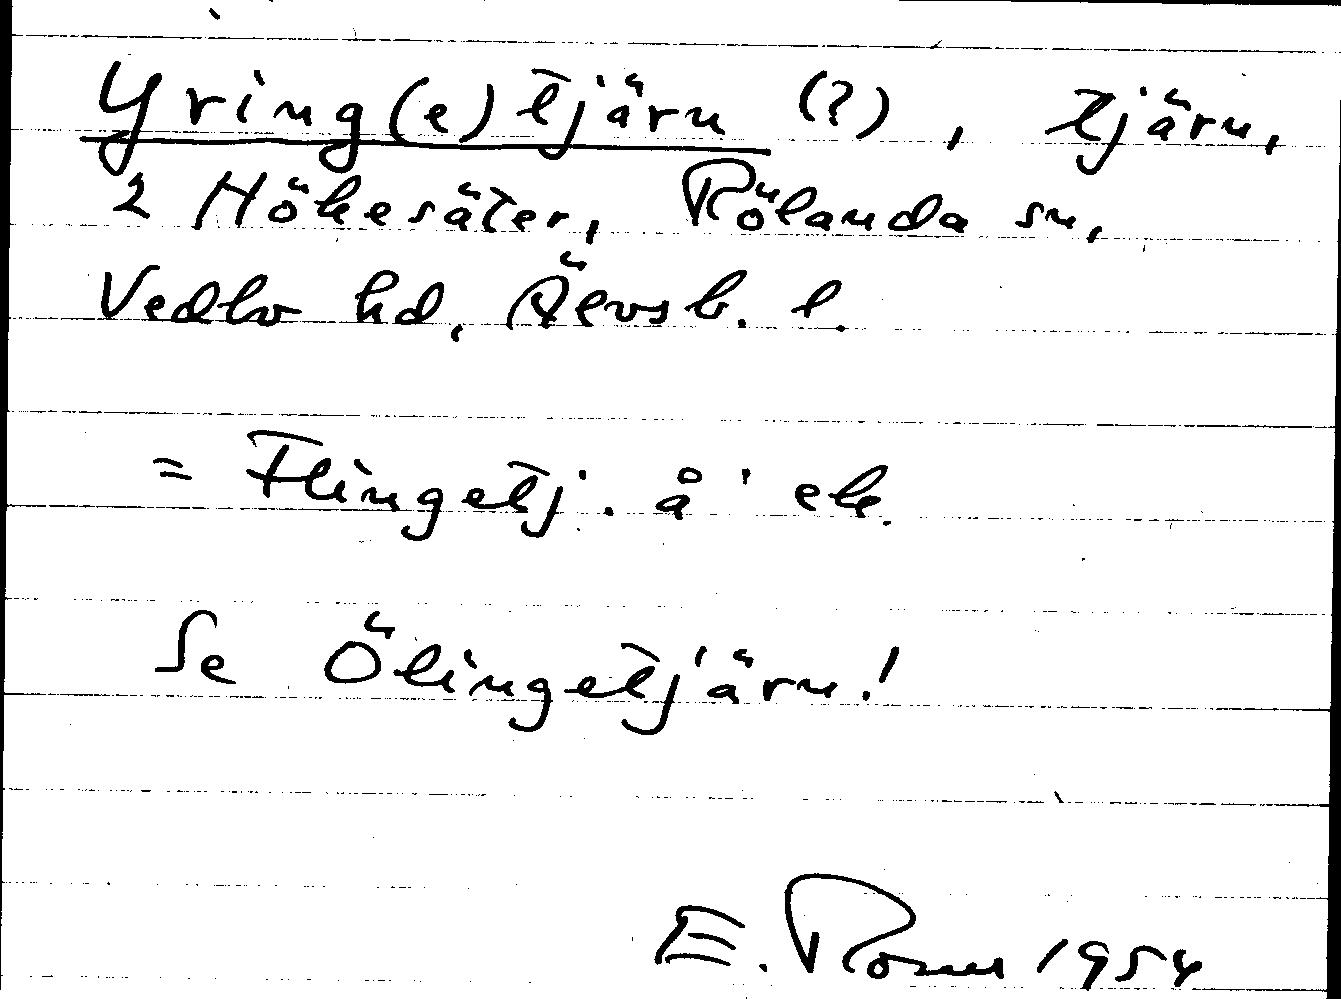 Yring(e)tjärn (?), tjärn,
2 Hökesäter, Rölanda sn,
Vedbo hd, Älvsb. l.
= Flingetj. å' ek.
Se Ölingetjärn!
E. Rosen 1954